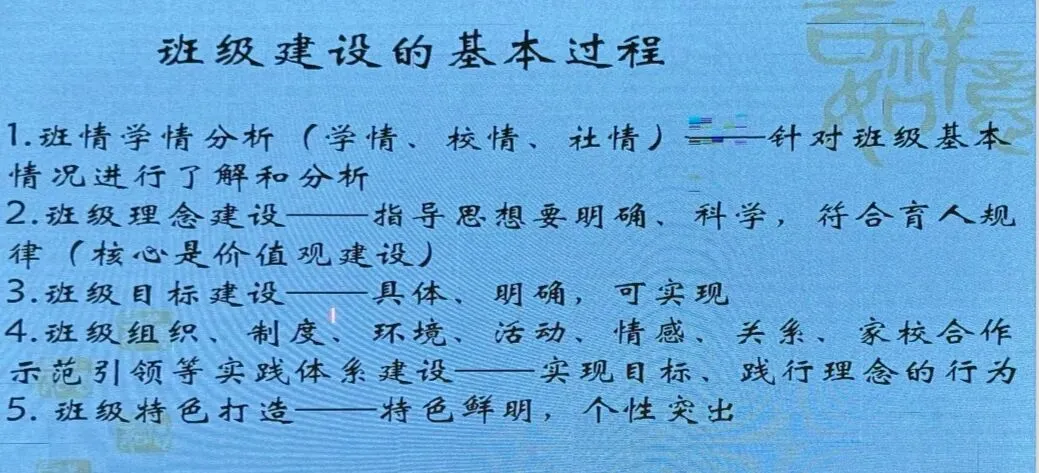 班级建设的基本过程
吉祥如意
1.班情学情分析（学情、校情、社情）——针对班级基本
情况进行了解和分析
2.班级理念建设——指导思想要明确、科学，符合育人规
律（核心是价值观建设）
3.班级目标建设——具体、明确，可实现
4.班级组织、制度、环境、活动、情感、关系、家校合作
示范引领等实践体系建设——实现目标、践行理念的行为
5. 班级特色打造——特色鲜明，个性突出